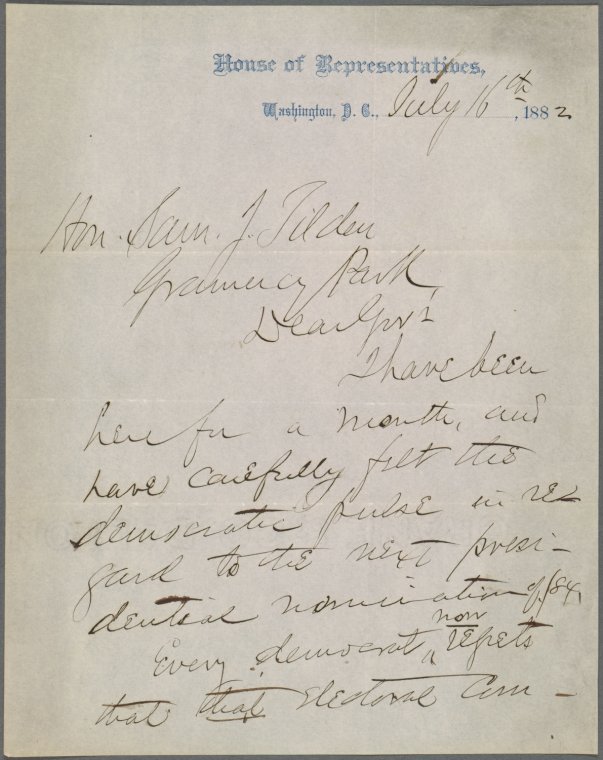 House of Representatives,
Washington, D. C., July 16th, 1882
Hon. Sam. J. Tilden
Gramercy Park,
Dear Govr
I have been
here for a month, and
have carefully felt the
democratic pulse in re-
gard to the next presi-
dential nomination of '84.
Every democrat, now regrets
that that Electoral Com-